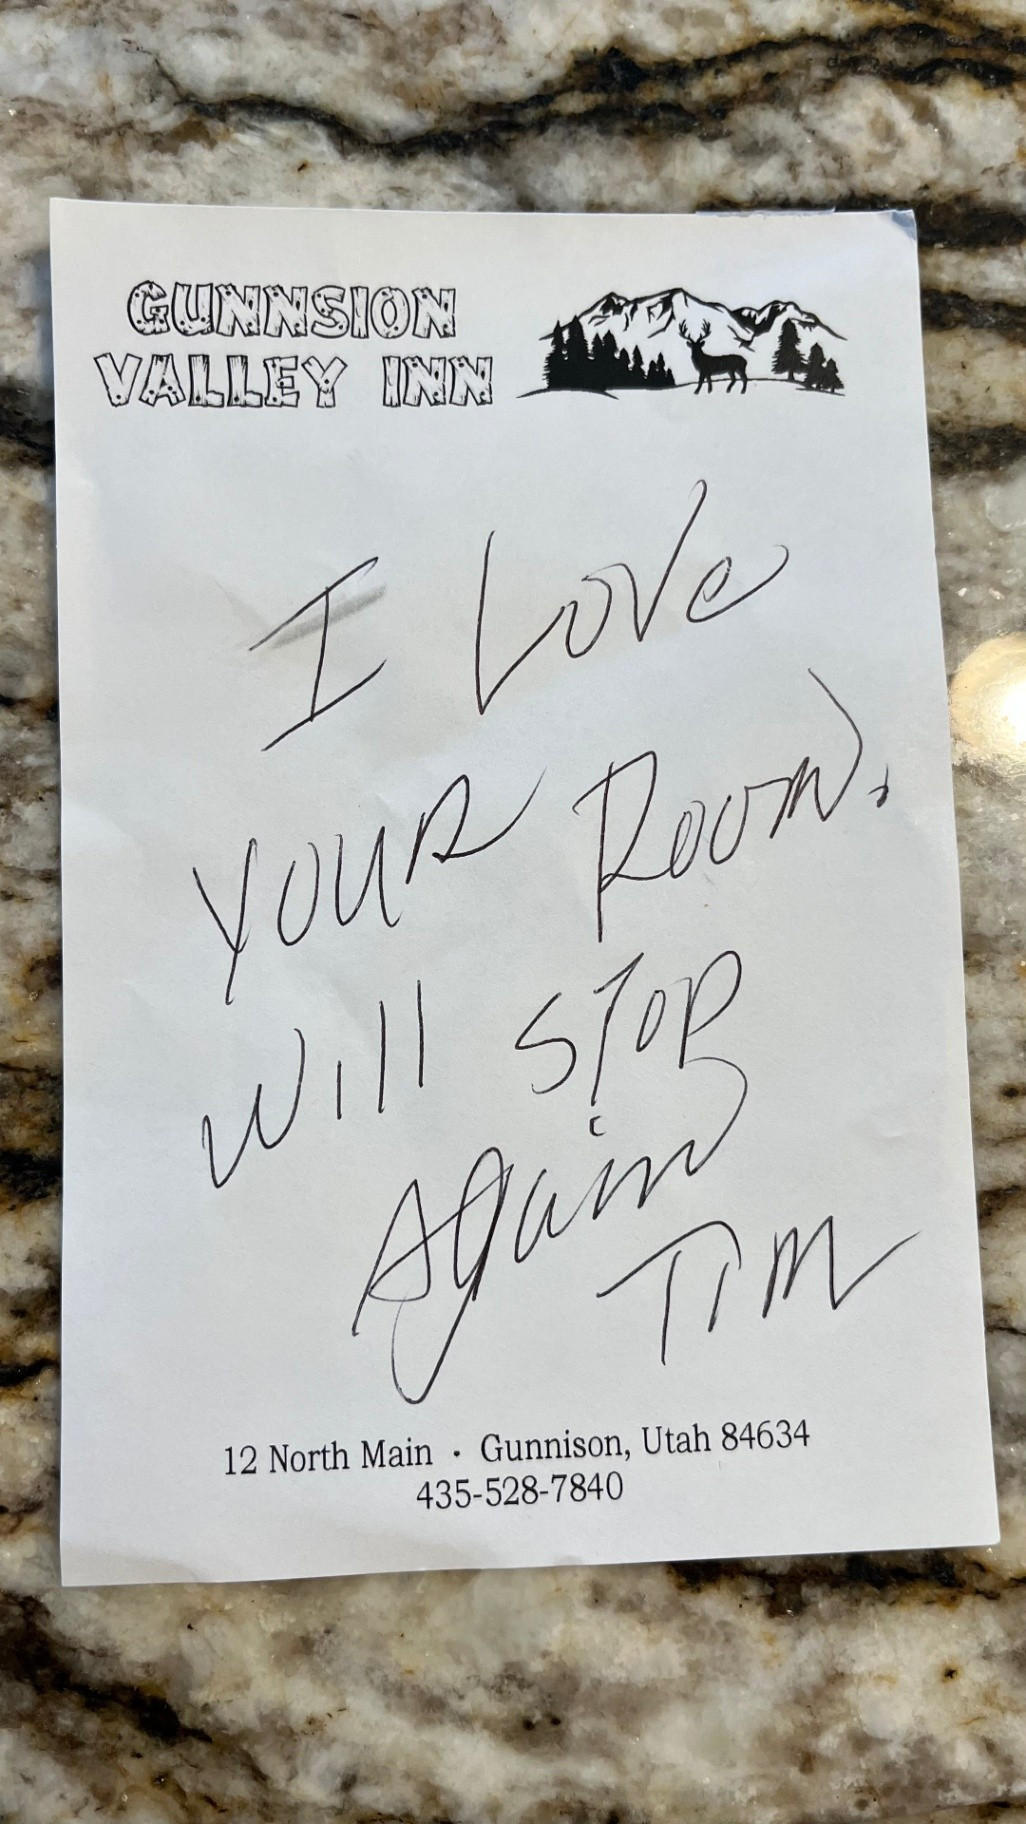 GUNNSION
VALLEY INN
I Love
YOUR Room.
Will STOP
Again
TIM
12 North Main · Gunnison, Utah 84634
435-528-7840